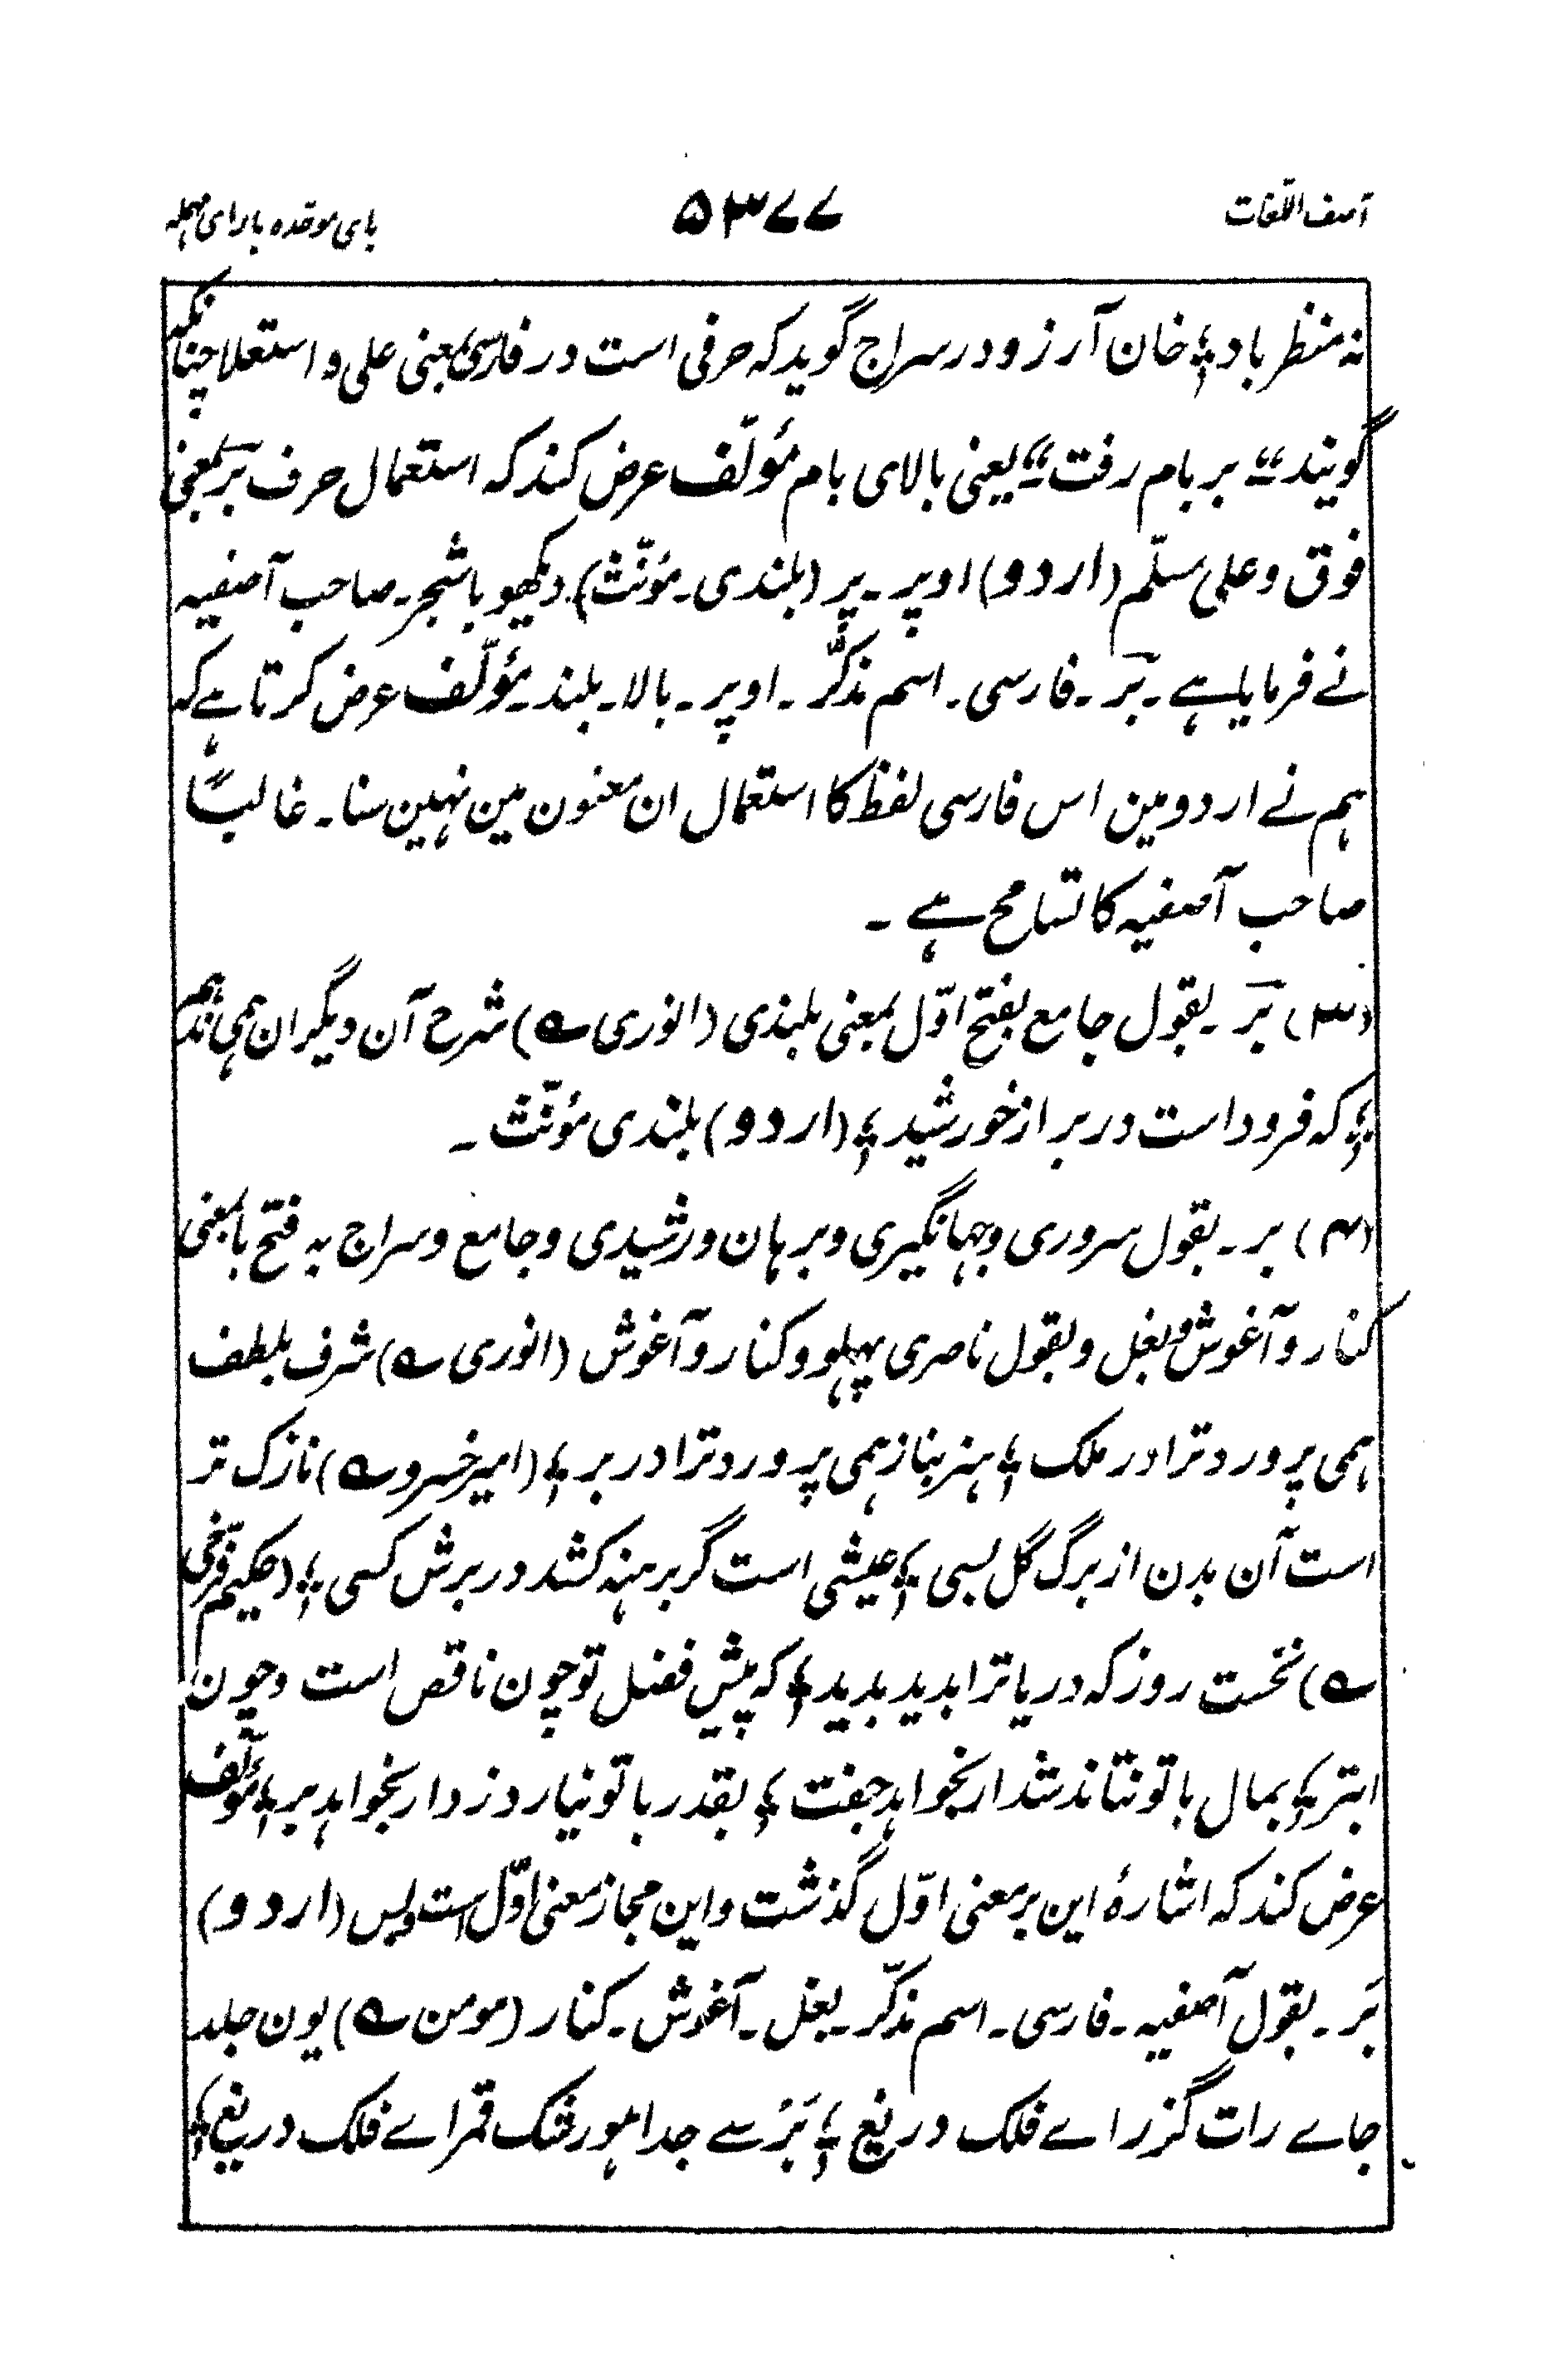 آصف اللغات ۵۳۷۷ بای موحّده با رای مہملہ
نہ منظر باد ؛ خان آرزو در سراج گوید کہ حرفی است در فارسی بمعنی علی و استعلا چنانکہ
گویند “ بر بام رفت ” یعنی بالای بام مؤلّف عرض کند کہ استعمال حرف بَر بمعنی
فوق و علی مسلّم (اردو) اوپر ۔ پر (بلندی ۔ مؤنّث) دیکھو باشجر ۔ صاحب آصفیہ
نے فرمایا ہے ۔ بَر ۔ فارسی ۔ اسم مذکّر ۔ اوپر ۔ بالا ۔ بلند ۔ مؤلّف عرض کرتا ہے کہ
ہم نے اردو مین اس فارسی لفظ کا استعمال ان معنون مین نہین سنا ۔ غالباً
صاحب آصفیہ کا تسامح ہے ۔
(۳) بَر ۔ بقول جامع بفتح اوّل بمعنی بلندی (انوری ؎) شرح آن دیگران ہمی ندہم
؛ کہ فرود است در بر از خورشید ؛ (اردو) بلندی مؤنّث ۔
(۴) بر ۔ بقول سروری و جہانگیری و برہان و رشیدی و جامع و سراج بہ فتح با بمعنی
کنار و آغوش و بغل و بقول ناصری پہلو و کنار و آغوش (انوری ؎) شرف بلطف
ہمی پرورد ترا در ملک ؛ ہنر بناز ہمی پرورد ترا در بر ؛ (امیر خسرو ؎) نازک تر
است آن بدن از برگ گل بسی ؛ عیشی است گر برہنہ کشد در برش کسی ؛ (حکیم فرّخی
؎) نخست روز کہ دریا ترا بدید بدید ؛ کہ پیش فضل تو چون ناقص است و چون
ابتر ؛ بمال با تو نتاند شد ار بخواہد جفت ؛ بقدر با تو نیارد زد ار بخواہد بر ؛ مؤلّف
عرض کند کہ اشارۂ این بر معنی اوّل گذشت و این مجاز معنی اوّل است و بس (اردو)
بَر ۔ بقول آصفیہ ۔ فارسی ۔ اسم مذکّر ۔ بغل ۔ آغوش ۔ کنار (مومن ؎) یون جلد
جاے رات گزر اے فلک دریغ ؛ بَرْ سے جدا ہو رشک قمر اے فلک دریغ ؛